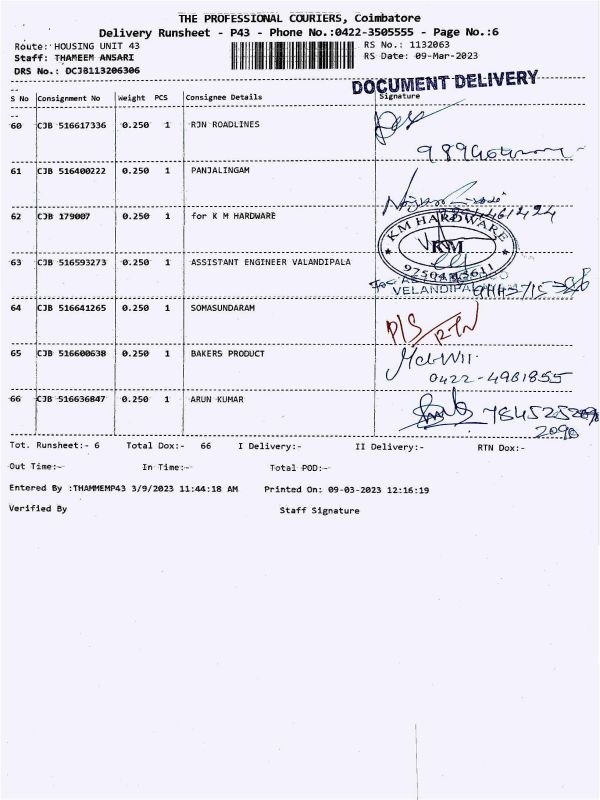 THE PROFESSIONAL COURIERS, Coimbatore
Delivery Runsheet - P43 - Phone No.:0422-3505555 - Page No.:6
Route: HOUSING UNIT 43 RS No.: 1132063
Staff: THAMEEM ANSARI RS Date: 09-Mar-2023
DRS No.: DCJB113206306
DOCUMENT DELIVERY
S No Consignment No Weight PCS Consignee Details Signature
60 CJB 516617336 0.250 1 RJN ROADLINES
61 CJB 516400222 0.250 1 PANJALINGAM
62 CJB 179007 0.250 1 for K M HARDWARE
KM HARDWARE
KM
63 CJB 516593273 0.250 1 ASSISTANT ENGINEER VALANDIPALA
64 CJB 516641265 0.250 1 SOMASUNDARAM
P/S RTN
65 CJB 516600638 0.250 1 BAKERS PRODUCT
0422-4981855
66 CJB 516636847 0.250 1 ARUN KUMAR
2090
Tot. Runsheet:- 6 Total Dox:- 66 I Delivery:- II Delivery:- RTN Dox:-
Out Time:- In Time:- Total POD:-
Entered By :THAMMEMP43 3/9/2023 11:44:18 AM Printed On: 09-03-2023 12:16:19
Verified By Staff Signature